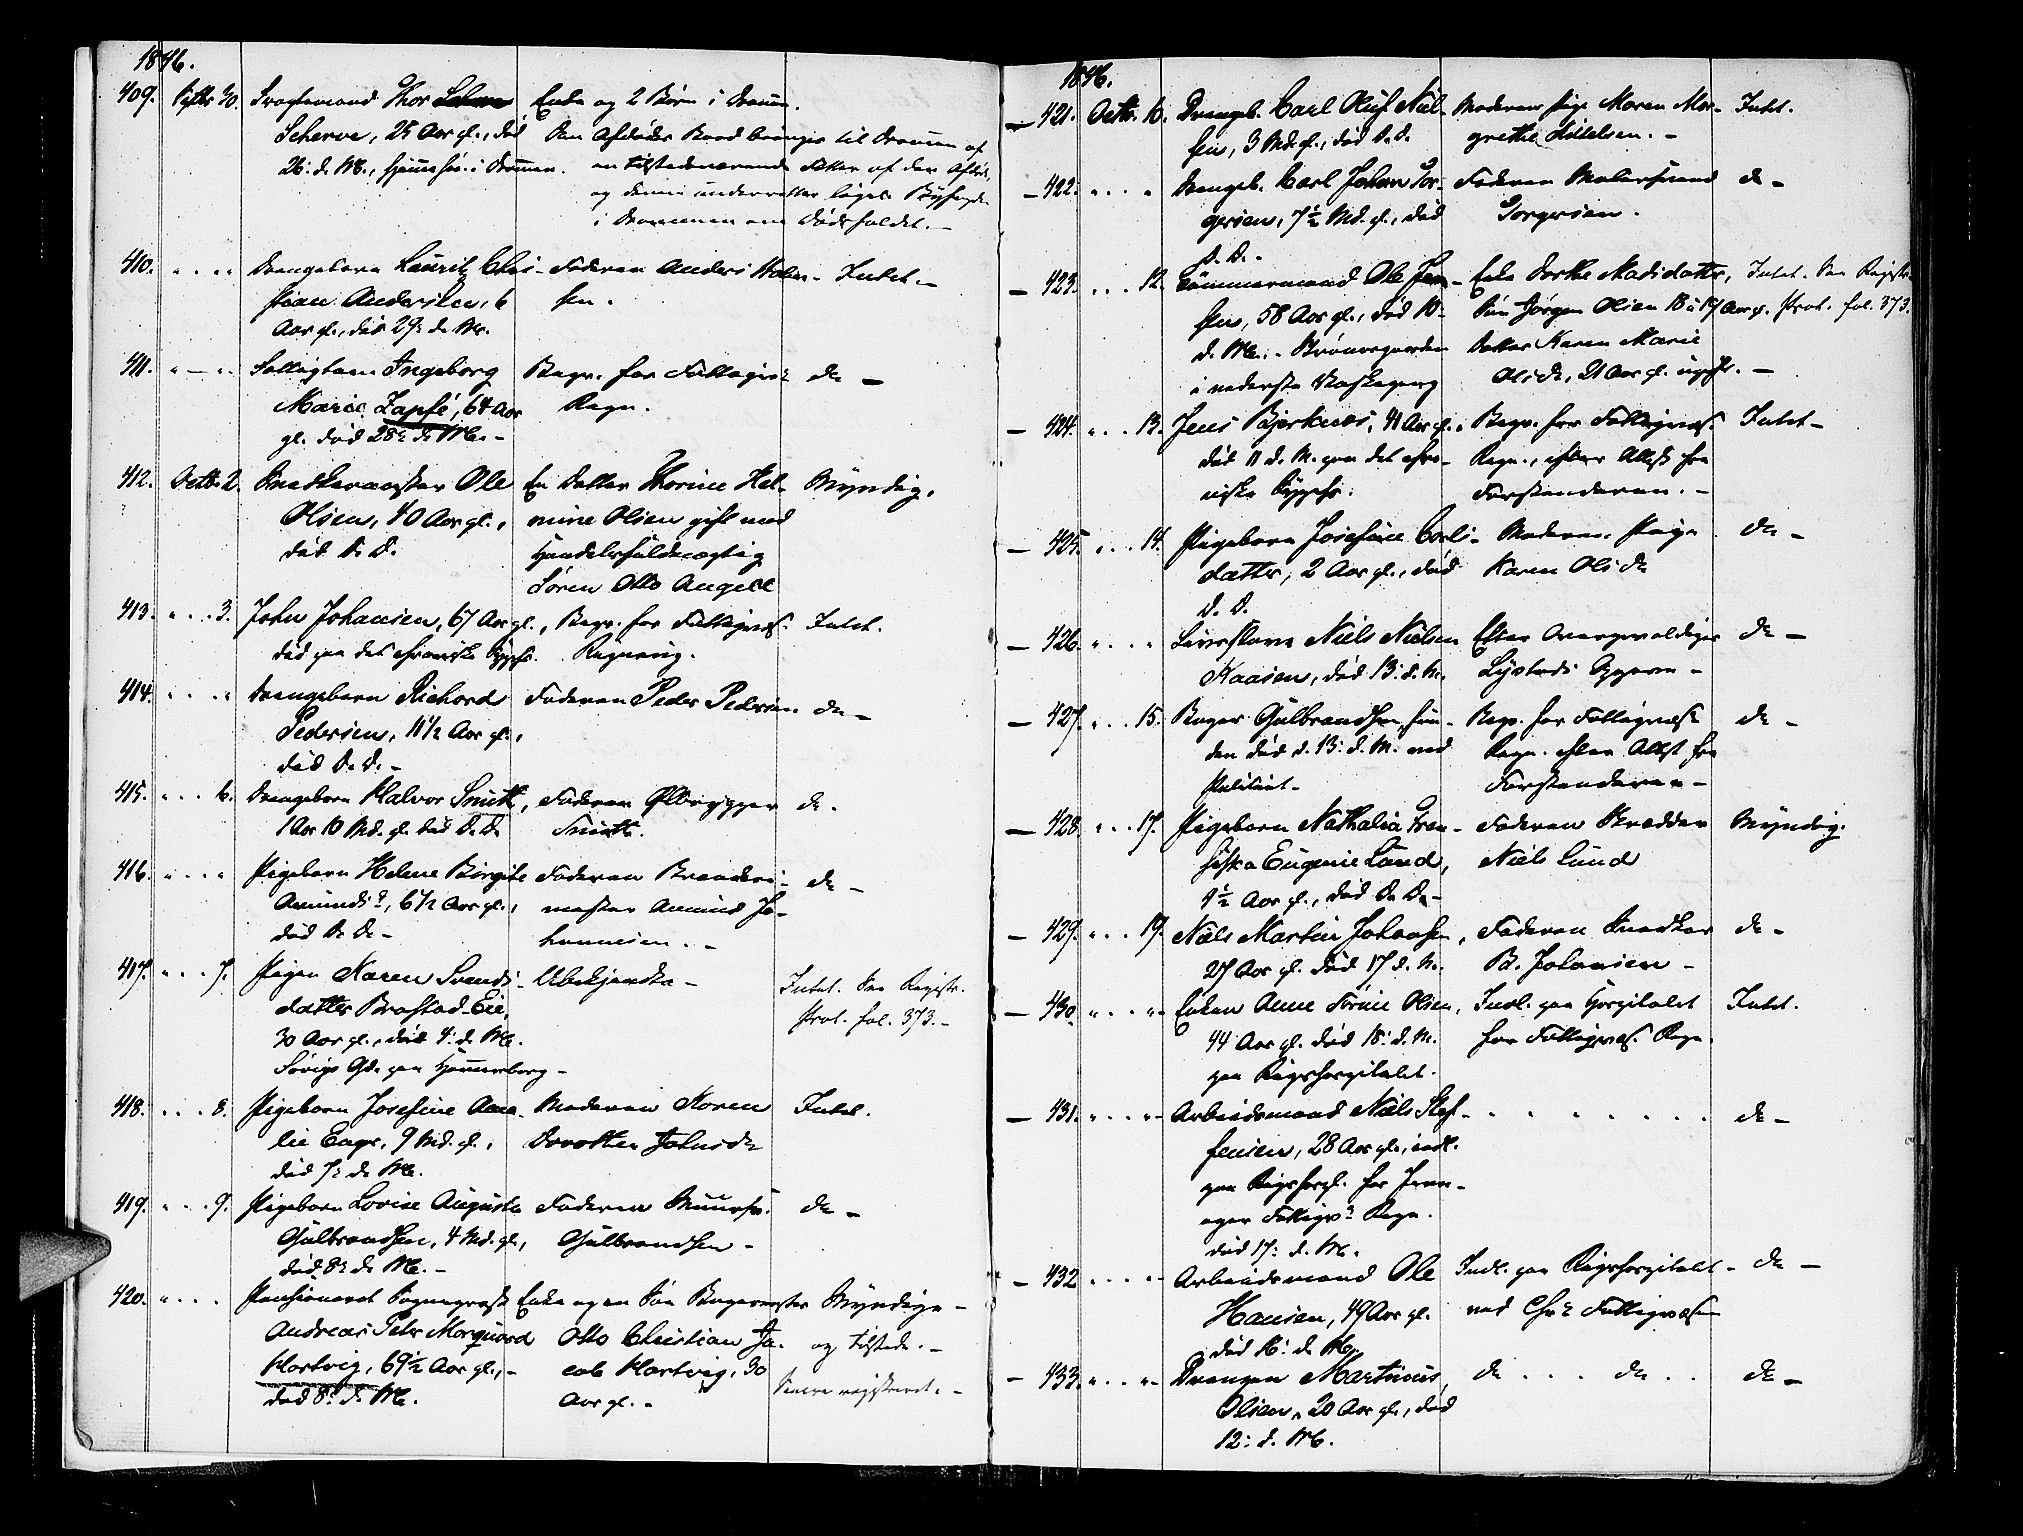 1846.
409. Septbr 30. Fragtemand Thor
Scherve, 25 Aar gl., død
26: d. M., hjemhør. i Drammen.
Enke og 2 Børn i Dramm.
Den Afdødes Baad bringes til Drammen af
en tilstedeværende Fætter af den Afdøde,
og denne underretter
i Drammen om Dødsfaldet. –
410. " . . " Drengebarn Lauritz Chri-
stian Andersen, 6
Aar gl., død 29: d. M.
Faderen Anders
sen.
Intet. –
411. " – " Ingeborg
Marie Zapfé, 64 Aar
gl. død 28: d. M. –
Begr. for Fattigvs:
Regn.
do –
412. Octb. 2. Snedkermester Ole
Olsen, 40 Aar gl.,
død d. D.
En Datter Thorine Hel-
mine Olsen gift med
Handelsfuldmægtig
Søren Otto Angell
Myndig.
413. " . . 3. John Johansen, 67 Aar gl.,
død paa det chroniske Sygehs.
Begr. for Fattigvæs.
Regning.
Intet.
414. " . . " Drengebarn Richard
Pedersen, 11½ Aar gl.,
død d. D. –
Faderen Peder Pedersen
do –
415. " . . 6. Drengebarn Halvor Smith,
1 Aar 10 Md. gl. død d. D.
Faderen Ølbrygger
Smith.
do.
416. " . . " Pigebarn Helene Birgite
Amunds:, 6½ Aar gl.,
død d. D. –
Faderen Brænderi-
mester Amund Jo-
hannesen. –
do –
417. " . . 7. Pigen Karen Svends-
datter Brastad-Eie,
30 Aar gl., død 4: d. M.
Sørigs Gd. paa Hammersborg –
Ubekjendte –
Intet. See Registr.
Prot. fol. 373. –
418. . . . 8. Pigebarn Josefine Ama-
lie Engr, 9 Md. gl.,
død 7: d. M.
Moderen Karen
Dorothea Johnsdr
Intet.
419. " . . 9. Pigebarn Lovise Augusta
Gulbrandsen, 4 Md. gl.,
død 8: d. M. –
Faderen Muursv.
Gulbrandsen –
do –
420. " . . . Pensioneret Sognepræst
Andreas Petr Marquard
Hartvig, 69½ Aar gl., –
død 8: d. M.
Enke og en Søn Bagermester
Otto Christian Ja-
cob Hartvig, 30
Aar gl. –
Myndige –
og tilstede. –
Senere registreret. –
1846.
– 421. Octbr. 10. Drengeb. Carl Oluf Niel-
sen, 3 Md. gl., død d. D.
Moderen Pige Maren Mar-
grethe –
Intet.
– 422. " . . " Drengeb. Carl Johan Jør-
gensen, 7½ Md. gl., død
d. D. –
Faderen Malersvend
Jørgensen.
do –
– 423. . . . 12. Tømmermand Ole Jen-
sen, 58 Aar gl., død 10:
d. M. –
i nederste
Enke Dorthe Madsdatter,
Søn Jørgen Olsen 18 à 19 Aar gl.
Datter Karen Marie
Olsdr, 21 Aar gl. ugift. –
Intet. See Registr.
Prot. fol. 373.
– 424. " . . 13. Jens Bjerknes, 41 Aar gl.,
død 11 d. M. paa det chro-
niske Sygehs.
Begr. for Fattigvæs.
Regn., efter Attest fra
Forstanderen. –
Intet –
– 425. " . . 14. Pigebarn Josefine Carls-
datter, 2 Aar gl., død
d. D.
Moderen Pige
Karen Olsdr
do –
– 426. " . . " Livsslave Niels Nielsen
Kaasen, død 13: d. M.
Efter Overgevaldiger
Lystads Opgave –
do –
– 427. " . . 15. Bager Gulbrandsen, fun-
den død d. 13: d. M. ved
Politiet. –
Begr. for Fattigvæs.
Regn. efter Attest fra
Forstanderen –
do –
– 428. " . . 17. Pigebarn Nathalia Fran-
siska Eugenie Lund,
1½ Aar gl., død d. D. –
Faderen Skrædder
Niels Lund
Myndig.
– 429. " . . 19. Niels Martin Johansen,
27 Aar gl. død 17 d. M.
Faderen Snedker
B. Johansen –
do –
– 430. " . . " Enken Anne Olsen,
44 Aar gl. død 18: d. M.
paa Rigshospitalet.
Indl. paa Hospitalet
for Fattigvæs. Regn.
Intet.
– 431. " . . " Arbeidsmand Niels Stef-
fensen, 28 Aar gl., indl.
paa Rigshospl. for
Fattigvs: Regn.
død 17: d. M.
. . . . . . .
do –
– 432 " . . " Arbeidsmand Ole
Hansen, 49 Aar gl.
død 16: d. M.
Indl. paa Rigshospitalet –
ved Chr: Fattigvæsen
do –
– 433. " . . " Drengen Martinius
Olsen, 20 Aar gl., død
12: d. M.
do . . . do . .
do –